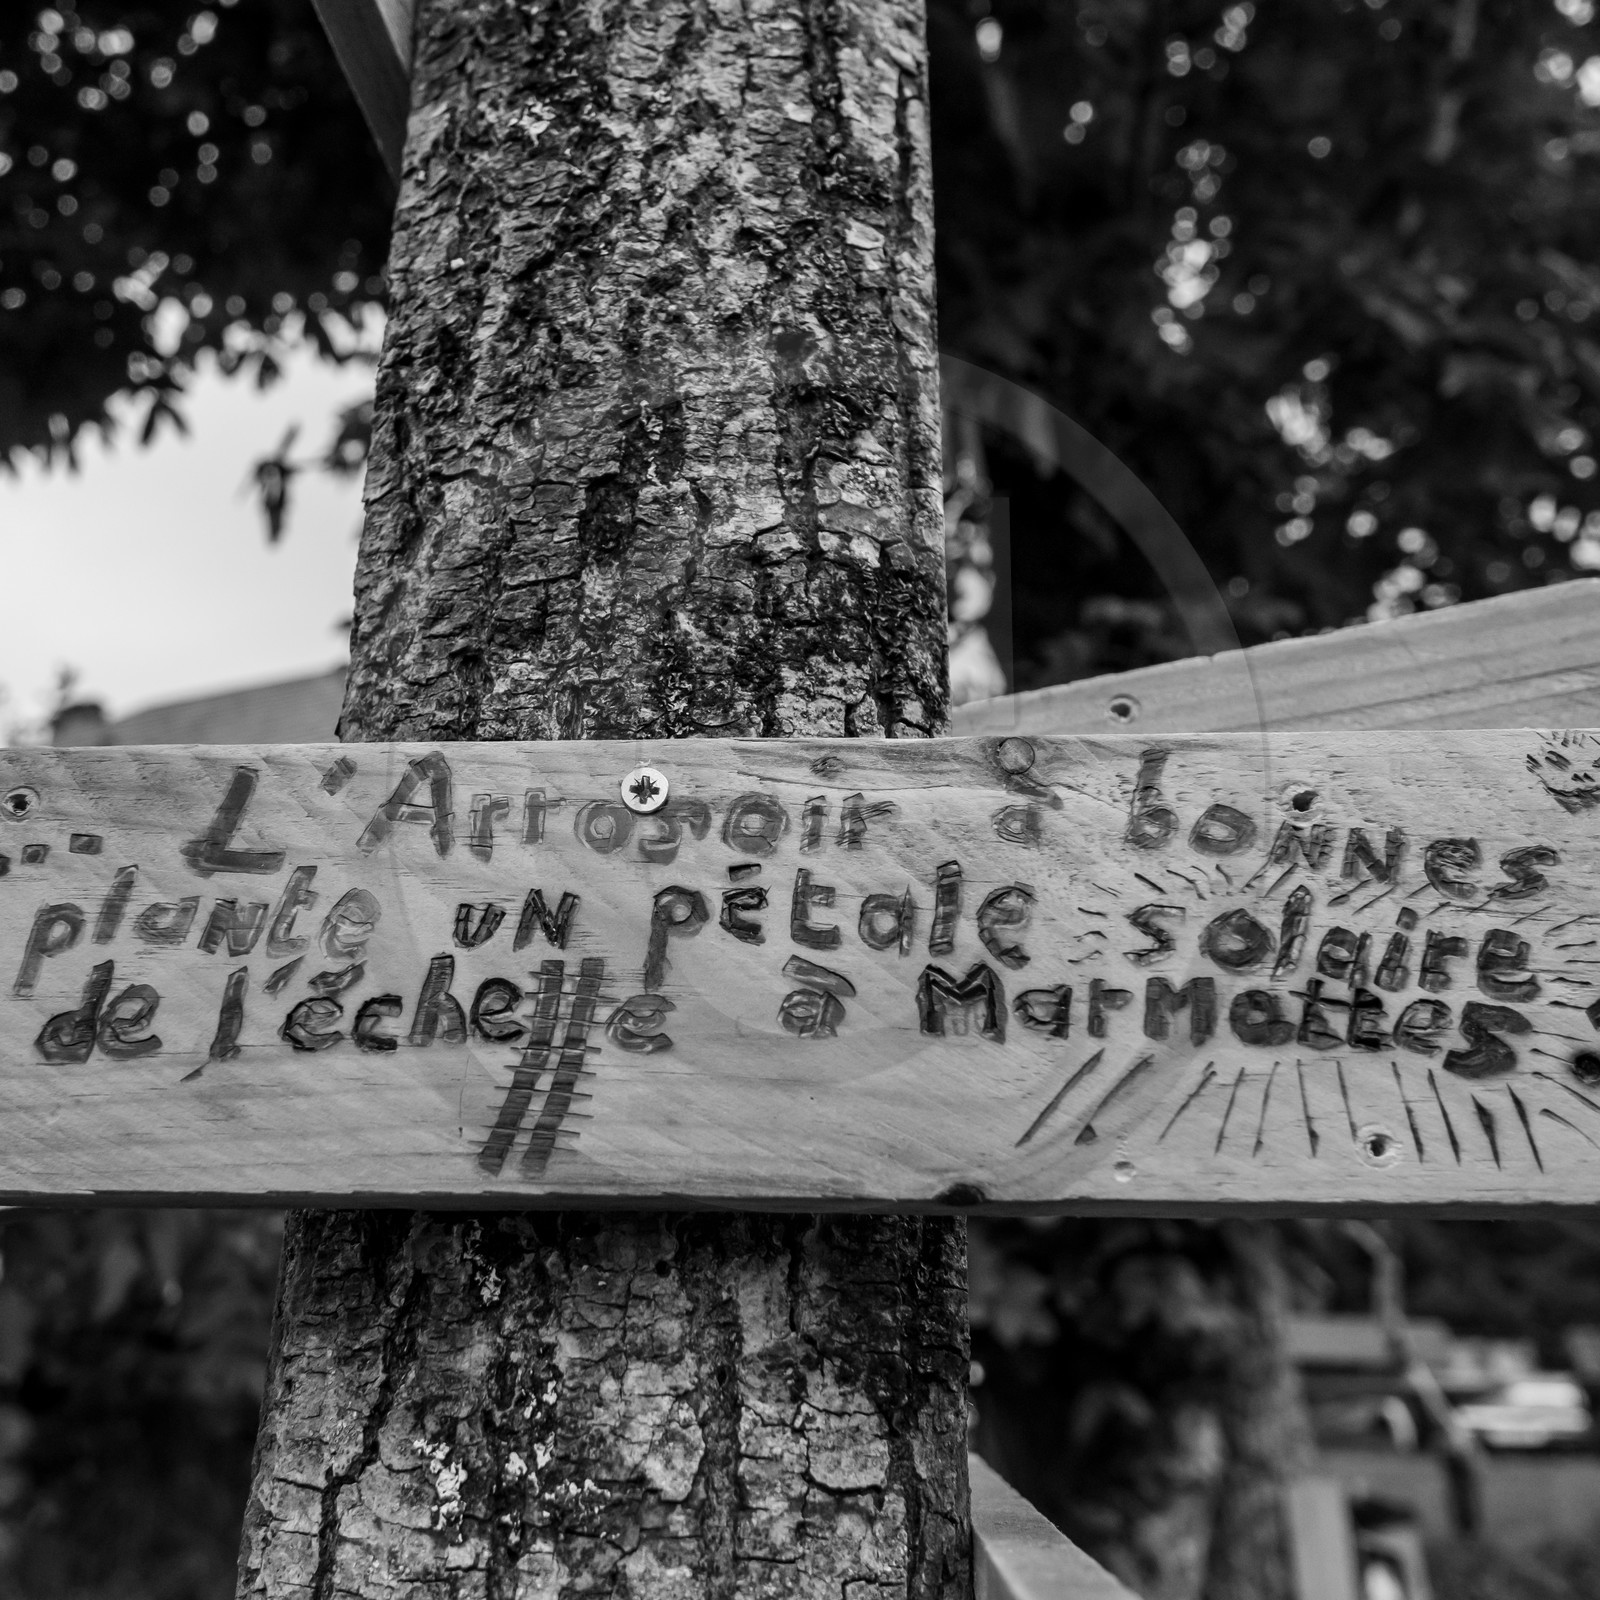 ... L'Arrosoir à bonnes
plante un pétale solaire
de l'échelle à Marmottes